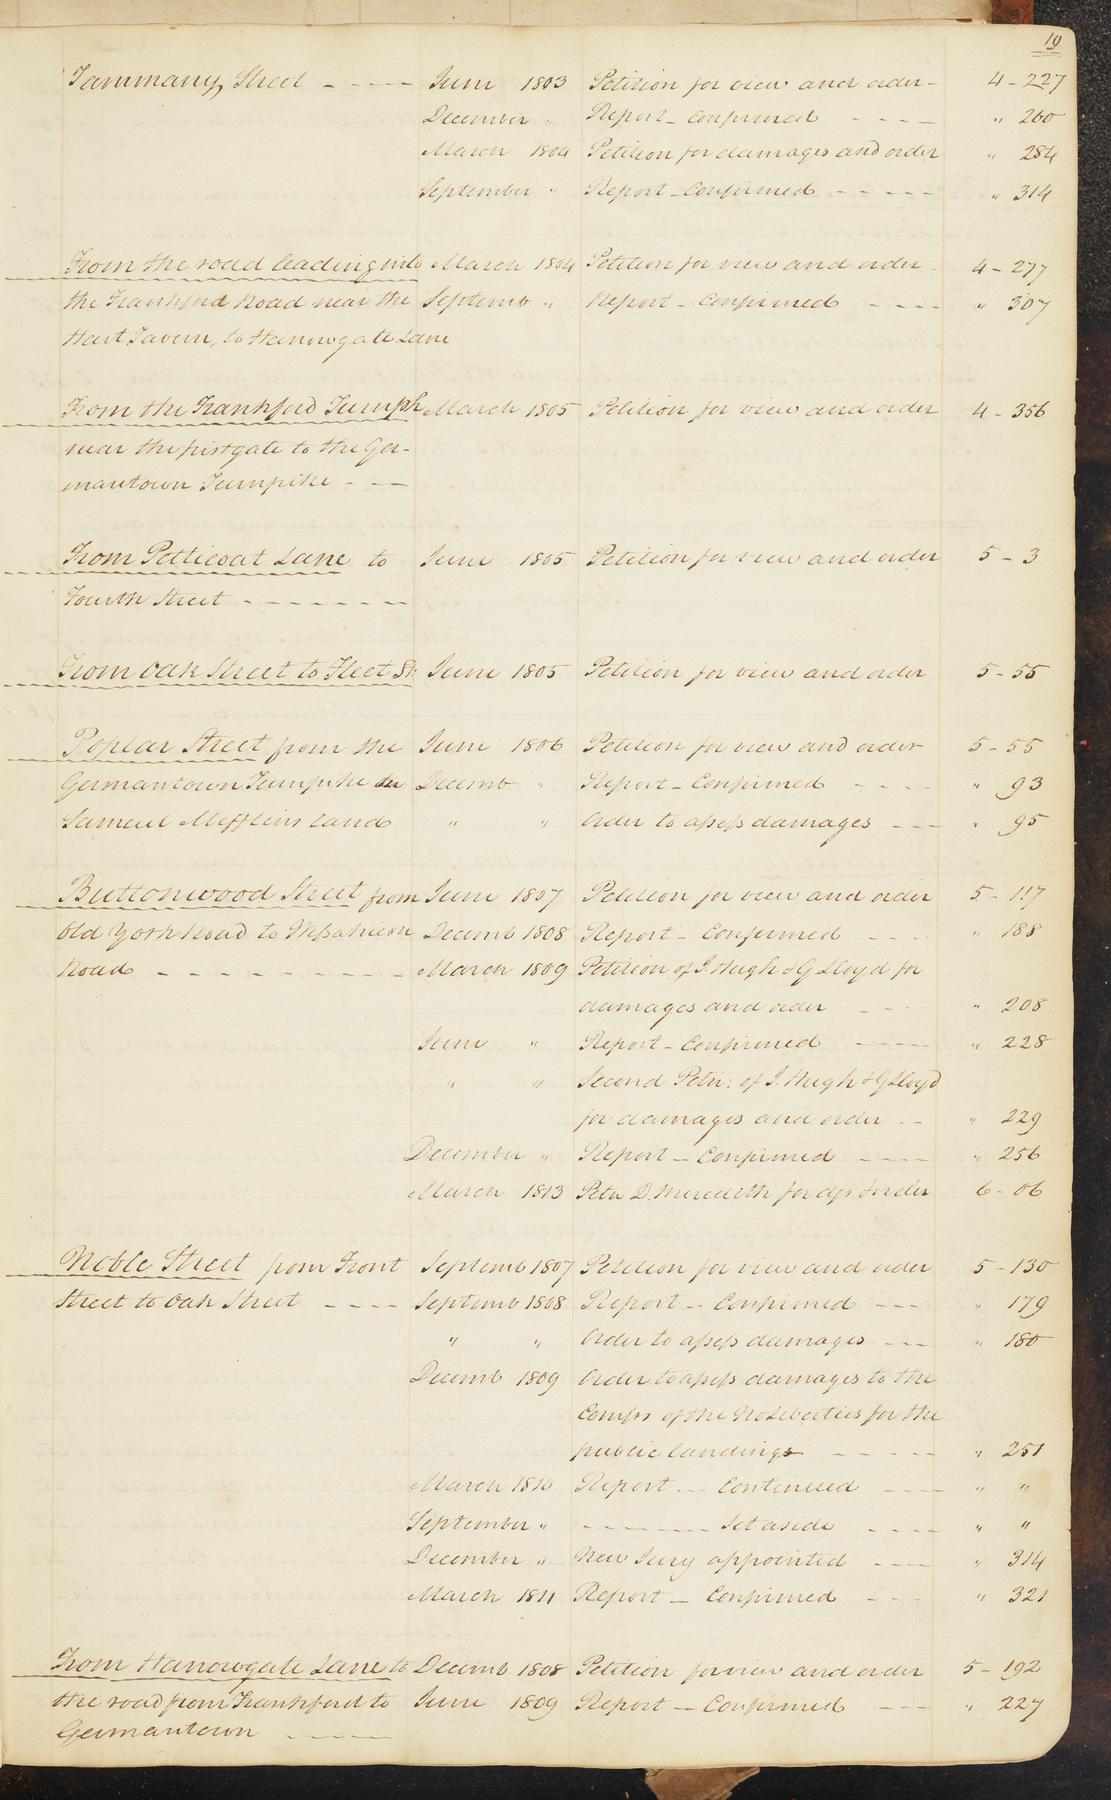 19
Tammany Street - - - - June 1803 Petition for view and order - 4 - 227
December " Report - Confirmed - - - - " 260
March 1804 Petition for damages and order " 284
September " Report - Confirmed - - - - - " 314
From the road leading into March 1804 Petition for view and order 4 - 277
the Frankford Road near the Septemb " Report - Confirmed - - - - " 307
Hart Tavern, to Harrowgate Lane
From the Frankford Turnpk March 1805 Petition for view and order 4 - 356
near the first gate to the Ger-
mantown Turnpike - - -
From Petticoat Lane to June 1805 Petition for view and order 5 - 3
Fourth Street - - - - - - -
From Oak Street to Fleet St: June 1805 Petition for view and order 5 - 55
Poplar Street from the June 1806 Petition for view and order 5 - 55
Germantown Turnpike Decemb " Report - Confirmed - - - - " 93
Samuel Mifflins land " " Order to assess damages - - - " 95
Buttonwood Street from June 1807 Petition for view and order 5 - 117
Old York Road to Wissahicon Decemb 1808 Report - Confirmed - - - - " 188
Road - - - - - - - - - March 1809 Petition of J. Hugh & G Lloyd for
damages and order - - - " 208
June " Report - Confirmed - - - - - " 228
" " Second Petn: of J. Hugh & G Lloyd
for damages and order - - " 229
December " Report - Confirmed - - - - " 256
March 1813 Petn D. Meredith for & order 6 - 06
Noble Street from Front Septemb 1807 Petition for view and order 5 - 130
Street to Oak Street - - - - Septemb 1808 Report - Confirmed - - - " 179
" " Order to assess damages - - - " 180
Decemb 1809 Order to assess damages to the
of the No Liberties for the
public landings - - - - - " 251
March 1810 Report - - Continued - - - - " "
September " - - - - - - - Set aside - - - - " "
December " New Jury appointed - - - - " 314
March 1811 Report - Confirmed - - - " 321
From Harrowgate Lane to Decemb 1808 Petition for view and order 5 - 192
the road from Frankford to June 1809 Report - Confirmed - - - " 227
Germantown - - - - -